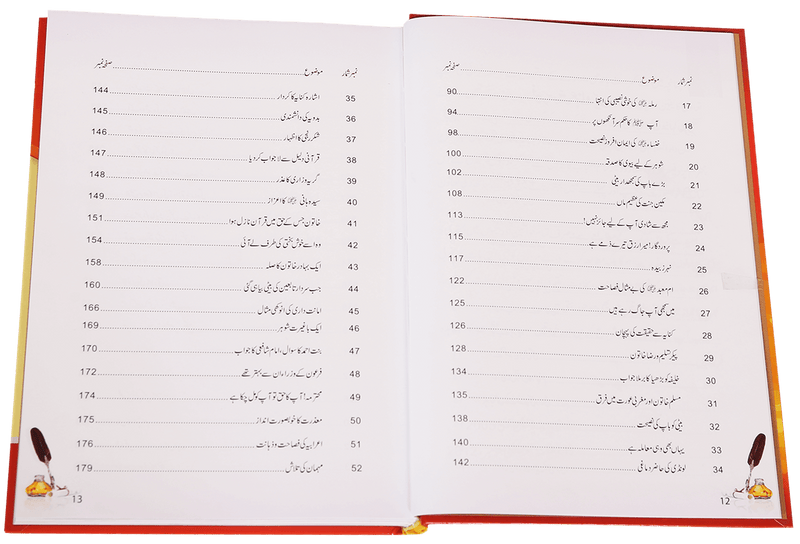 نمبر شمار موضوع صفحہ نمبر
17 رملہ کی خوش نصیبی کی انتہا 90
18 آپ کا حکم سر آنکھوں پر 94
19 خنساء کی ایمان افروز نصیحت 98
20 شوہر کے لیے بیوی کا صدقہ 100
21 بڑے باپ کی سمجھدار بیٹی 102
22 مکین جنت کی عظیم ماں 108
23 مجھ سے شادی آپ کے لیے جائز نہیں! 113
24 پروردگار! میرا رزق تیرے ذمے ہے 115
25 نہر زبیدہ 117
26 ام معبد کی بے مثال فصاحت 122
27 میں سمجھی آپ جاگ رہے ہیں 125
28 کنایہ سے حقیقت کی پہچان 126
29 پیکر تسلیم و رضا خاتون 128
30 خلیفہ کو بڑھیا کا برملا جواب 134
31 مسلم خاتون اور مغربی عورت میں فرق 135
32 بیٹی کو باپ کی نصیحت 138
33 یہاں بھی وہی معاملہ ہے 140
34 لونڈی کی حاضر دماغی 142
12
نمبر شمار موضوع صفحہ نمبر
35 اشارہ کنایہ کا کردار 144
36 بدویہ کی دانشمندی 145
37 شکر رنجی کا اظہار 146
38 قرآنی دلیل سے لاجواب کر دیا 147
39 گریہ و زاری کا عذر 148
40 سیدہ ہانی کا اعزاز 149
41 خاتون جس کے حق میں قرآن نازل ہوا 151
42 وہ اسے خوش بختی کی طرف لے آئی 154
43 ایک بہادر خاتون کا صلہ 158
44 جب سردار تابعین کی بیٹی بیاہی گئی 160
45 امانت داری کی انوکھی مثال 166
46 ایک باغیرت شوہر 169
47 بنت احمد کا سوال، امام شافعی کا جواب 170
48 فرعون کے وزراء ان سے بہتر تھے 172
49 محترمہ! آپ کا حق تو آپ کو مل چکا ہے 174
50 معذرت کا خوبصورت انداز 175
51 اعرابیہ کی فصاحت و ذہانت 176
52 مہمان کی تلاش 179
13